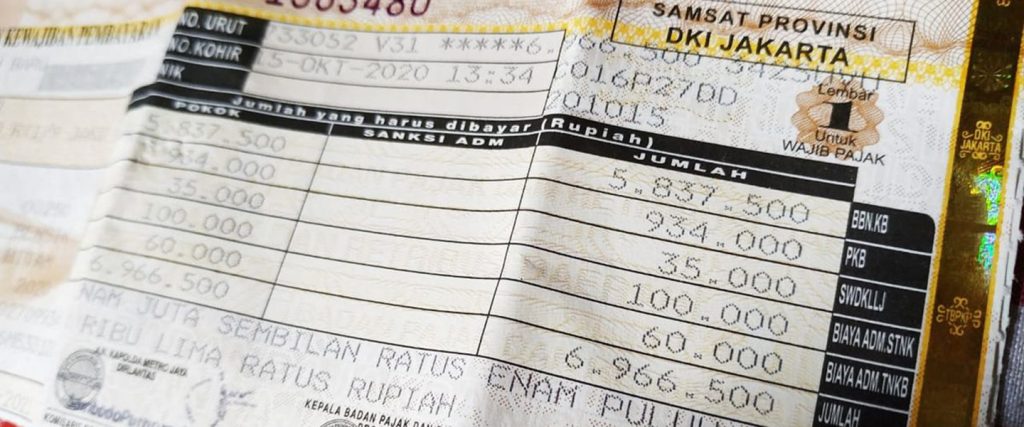 SAMSAT PROVINSI
DKI JAKARTA
NO. URUT
33052 V31 *****6.966.500
NO.KOHIR
15-OKT-2020 13:34
016P27DD
NIK
201015
Lembar
1
Untuk
WAJIB PAJAK
DKI
JAKARTA
Jumlah yang harus dibayar (Rupiah)
POKOK SANKSI ADM JUMLAH
5.837.500 5.837.500 BBN.KB
934.000 934.000 PKB
35.000 35.000 SWDKLLJ
100.000 100.000 BIAYA ADM.STNK
60.000 60.000 BIAYA ADM.TNKB
6.966.500 6.966.500 JUMLAH
NAM JUTA SEMBILAN RATUS ENAM PULUH
RIBU LIMA RATUS RUPIAH
A.N. KAPOLDA METRO JAYA
DIRLANTAS
KEPALA BADAN PAJAK DAN